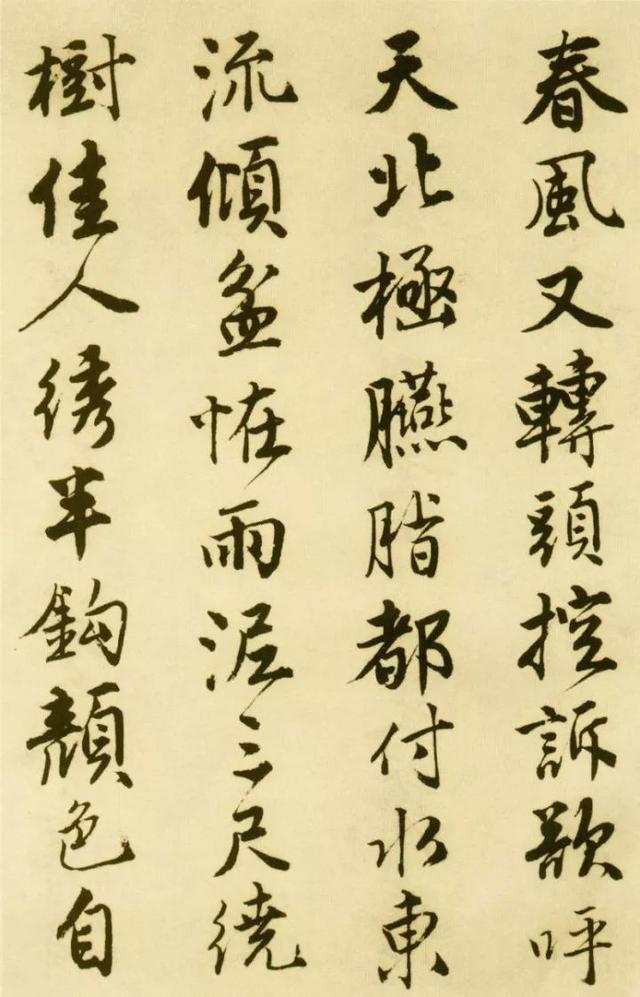 春風又轉頭控訴欲呼
天北極臙脂都付水東
流傾盆恠雨泥三尺繞
樹佳人綉半鈎顔色自